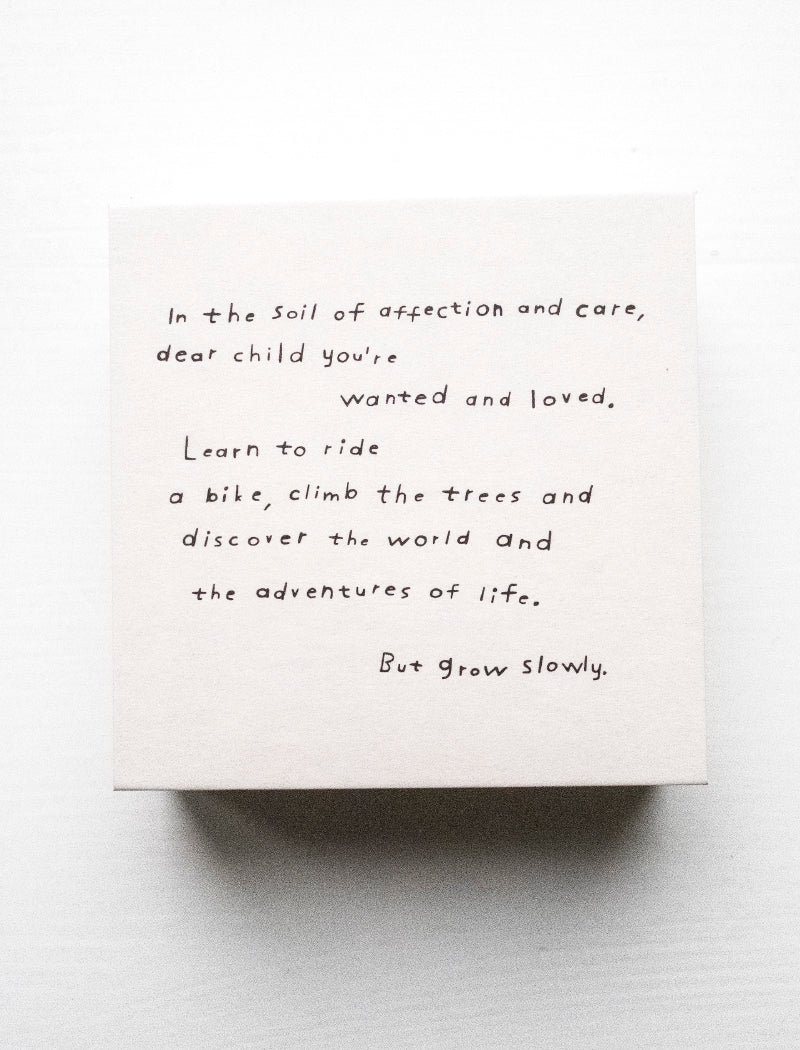 In the soil of affection and care,
dear child you're
wanted and loved.
Learn to ride
a bike, climb the trees and
discover the world and
the adventures of life.
But grow slowly.